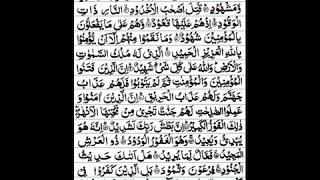 وَّمَشْهُوْدٍ ۞ قُتِلَ اَصْحٰبُ الْاُخْدُوْدِ ۞ النَّارِ ذَاتِ
الْوَقُوْدِ ۞ اِذْ هُمْ عَلَيْهَا قُعُوْدٌ ۞ وَّهُمْ عَلٰى مَا يَفْعَلُوْنَ
بِالْمُؤْمِنِيْنَ شُهُوْدٌ ۞ وَمَا نَقَمُوْا مِنْهُمْ اِلَّاۤ اَنْ يُّؤْمِنُوْا
بِاللّٰهِ الْعَزِيْزِ الْحَمِيْدِ ۞ الَّذِيْ لَهٗ مُلْكُ السَّمٰوٰتِ
وَالْاَرْضِ وَاللّٰهُ عَلٰى كُلِّ شَيْءٍ شَهِيْدٌ ۞ اِنَّ الَّذِيْنَ فَتَنُوا
الْمُؤْمِنِيْنَ وَالْمُؤْمِنٰتِ ثُمَّ لَمْ يَتُوْبُوْا فَلَهُمْ عَذَابُ
جَهَنَّمَ وَلَهُمْ عَذَابُ الْحَرِيْقِ ۞ اِنَّ الَّذِيْنَ اٰمَنُوْا وَ
عَمِلُوا الصّٰلِحٰتِ لَهُمْ جَنّٰتٌ تَجْرِيْ مِنْ تَحْتِهَا الْاَنْهٰرُ
ذٰلِكَ الْفَوْزُ الْكَبِيْرُ ۞ اِنَّ بَطْشَ رَبِّكَ لَشَدِيْدٌ ۞ اِنَّهٗ هُوَ
يُبْدِئُ وَيُعِيْدُ ۞ وَهُوَ الْغَفُوْرُ الْوَدُوْدُ ۞ ذُو الْعَرْشِ
الْمَجِيْدُ ۞ فَعَّالٌ لِّمَا يُرِيْدُ ۞ هَلْ اَتٰىكَ حَدِيْثُ
الْجُنُوْدِ ۞ فِرْعَوْنَ وَثَمُوْدَ ۞ بَلِ الَّذِيْنَ كَفَرُوْا فِيْ